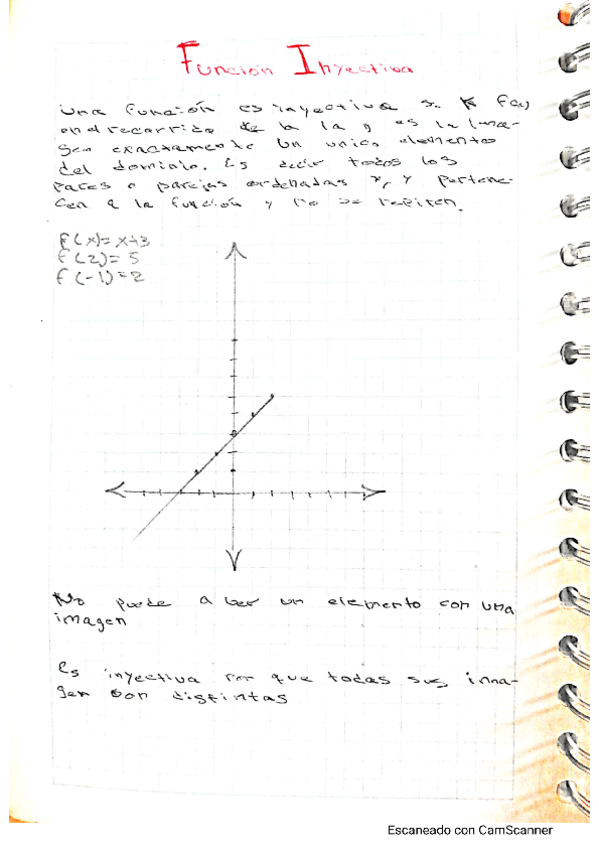 Función Inyectiva
Una función es inyectiva si K f(x)
en el recorrido de la es la ima-
gen exactamente un unico elemento
del dominio. Es decir todos los
pares o parejas ordenadas x, y pertene-
cen a la función y no se repiten.
f(x)= x+3
f(2)= 5
f(-1)=2
No puede a ber un elemento con una
imagen
Es inyectiva por que todas sus ima-
gen son distintas
Escaneado con CamScanner